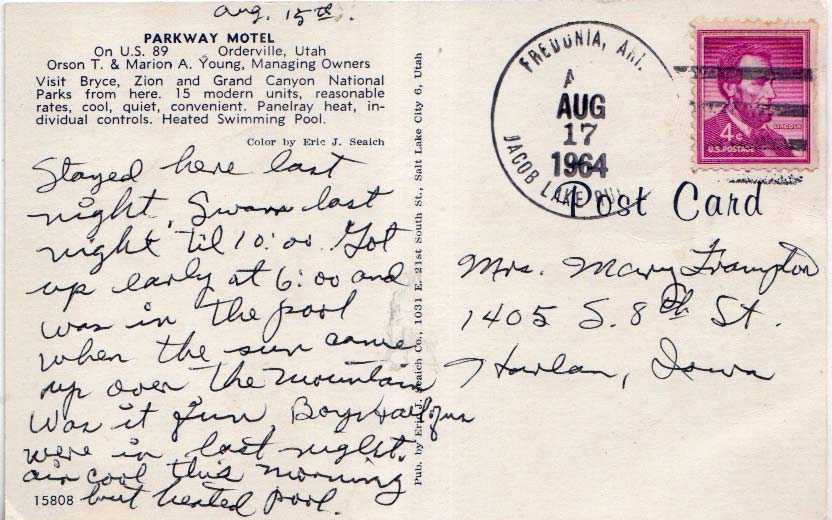 Aug. 15th.
PARKWAY MOTEL
On U.S. 89 Orderville, Utah
Orson T. & Marion A. Young, Managing Owners
Visit Bryce, Zion and Grand Canyon National
Parks from here. 15 modern units, reasonable
rates, cool, quiet, convenient. Panelray heat, in-
dividual controls. Heated Swimming Pool.
Color by Eric J. Seaich
Stayed here last
night. Swam last
night til 10:00. Got
up early at 6:00 and
was in the pool
when the sun came
up over the mountain
Was it fun. Boys
were in last night.
air cool this morning
but heated pool.
15808
Pub. by Eric J. Seaich Co., 1031 E. 21st South St., Salt Lake City 6, Utah
FREDONIA, ARI.
A
AUG
17
1964
JACOB LAKE RU
4¢
LINCOLN
U.S. POSTAGE
Post Card
Mrs. Mary Frampton
1405 S. 8th St.
Harlan, Iowa